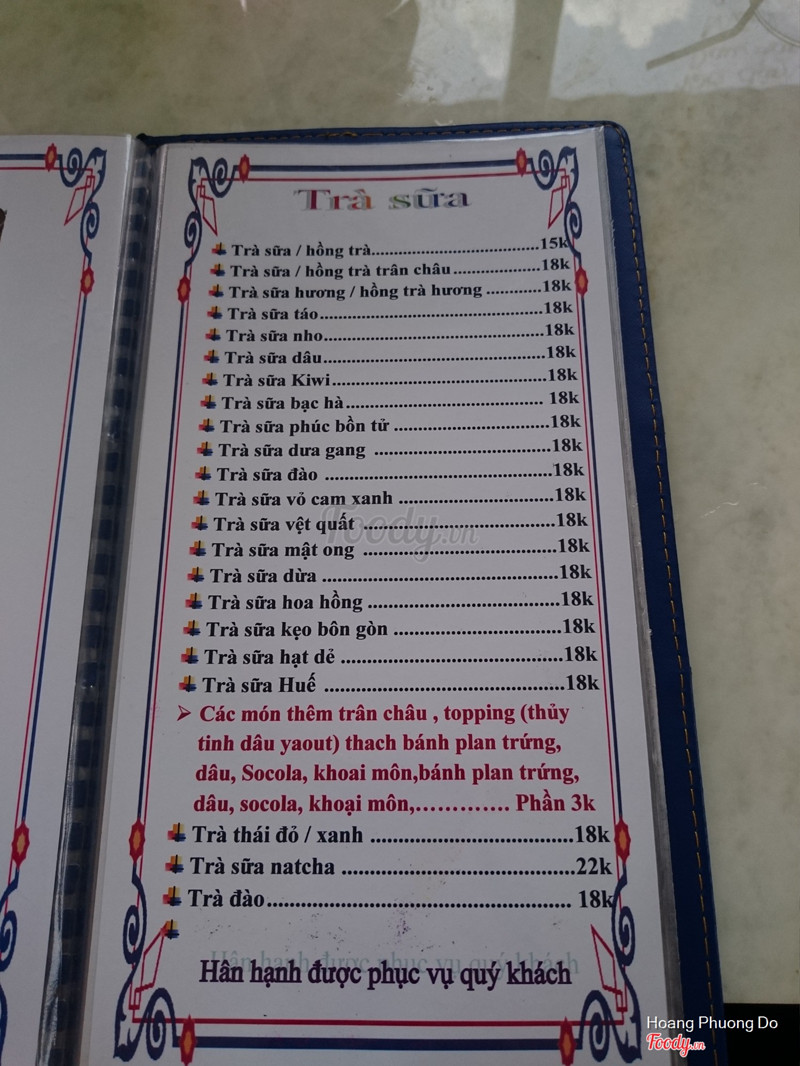 Trà sữa
Trà sữa / hồng trà.......................................15k
Trà sữa / hồng trà trân châu....................18k
Trà sữa hương / hồng trà hương .............18k
Trà sữa táo....................................................18k
Trà sữa nho...................................................18k
Trà sữa dâu...................................................18k
Trà sữa Kiwi.................................................18k
Trà sữa bạc hà............................................. 18k
Trà sữa phúc bồn tử ...................................18k
Trà sữa dưa gang ........................................18k
Trà sữa đào ..................................................18k
Trà sữa vỏ cam xanh ..................................18k
Trà sữa vệt quất ..........................................18k
Trà sữa mật ong ..........................................18k
Trà sữa dừa ..................................................18k
Trà sữa hoa hồng .........................................18k
Trà sữa kẹo bôn gòn ...................................18k
Trà sữa hạt dẻ ..............................................18k
Trà sữa Huế .................................................18k
Các món thêm trân châu , topping (thủy
tinh dâu yaout) thach bánh plan trứng,
dâu, Socola, khoai môn,bánh plan trứng,
dâu, socola, khoại môn,…………. Phần 3k
Trà thái đỏ / xanh .......................................18k
Trà sữa natcha .............................................22k
Trà đào........................................................... 18k
Hân hạnh được phục vụ quý khách
Foody.vn
Hoang Phuong Do
Foody.vn